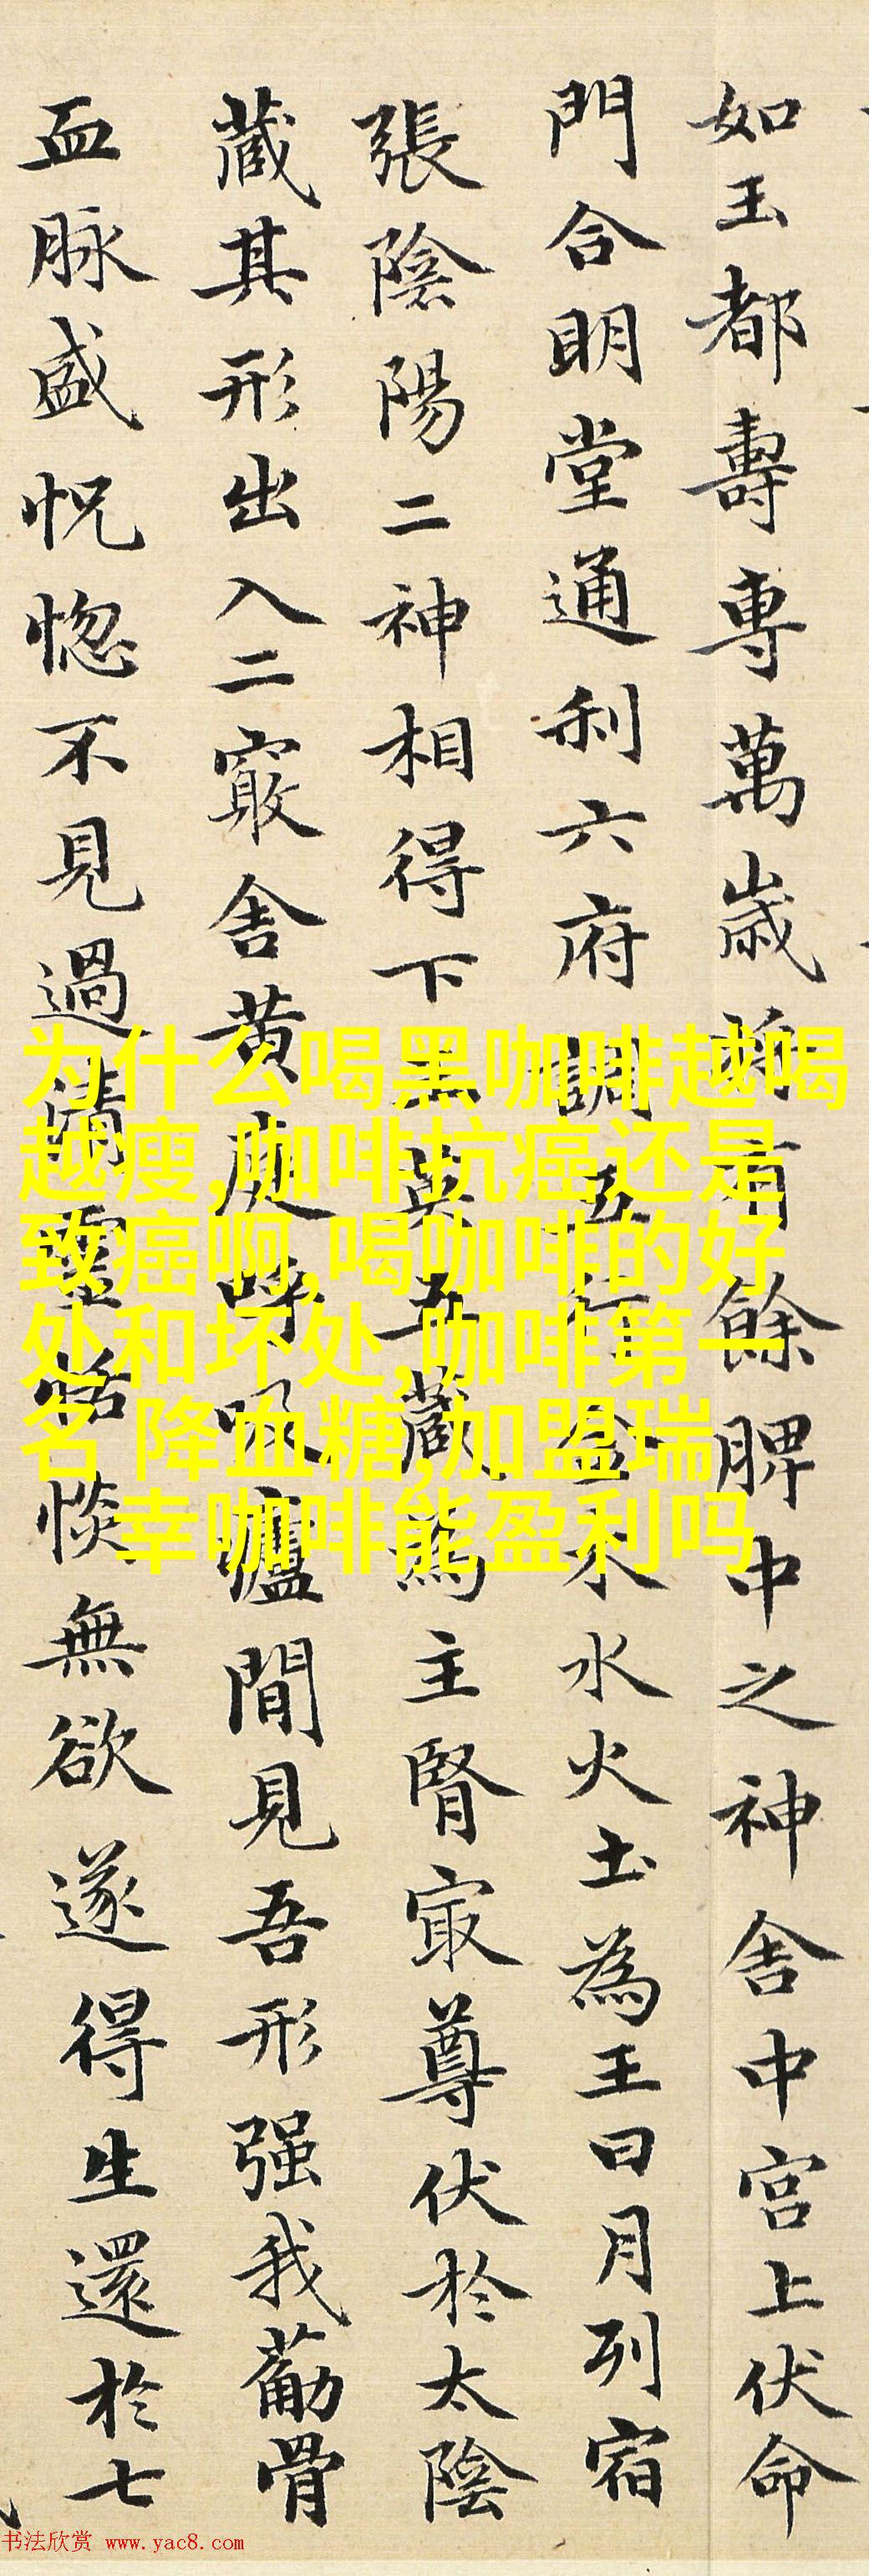 如玉都壽專萬歲將有餘脾中之神舍中宮上伏命
門合明堂通利六府調五行金木水火土為王日月列宿
張陰陽二神相得下玉英五藏為主腎冣尊伏於太陰
藏其形出入二竅舍黃庭呼吸廬間見吾形强我葪骨
血脉盛怳惚不見過清靈恬惔無欲遂得生還於七
为什么喝黑咖啡越喝
越瘦,咖啡抗癌还是
致癌啊,喝咖啡的好
处和坏处,咖啡第一
名 降血糖,加盟瑞
幸咖啡能盈利吗
书法欣赏 www.yac8.com